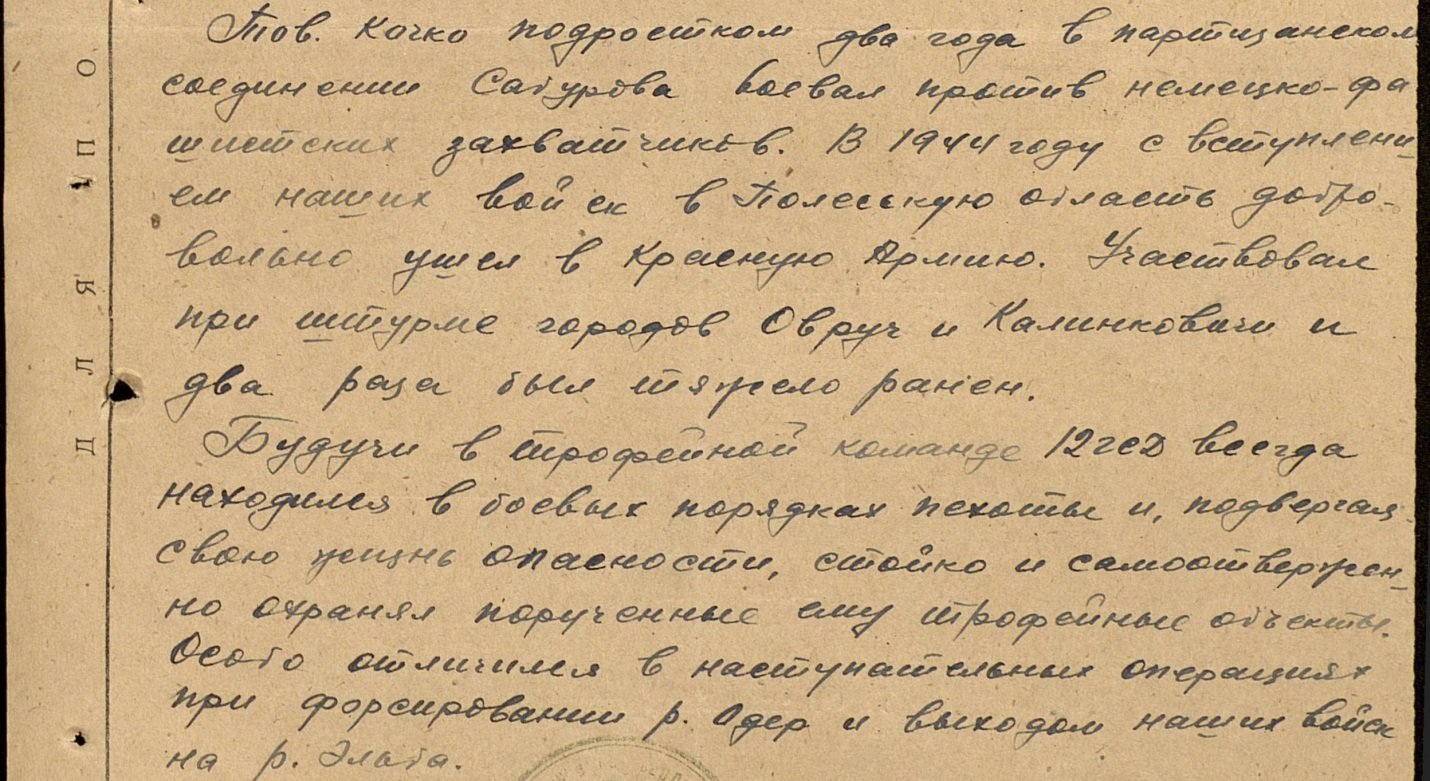 Тов. Кочко подростком два года в партизанском
соединении Сабурова воевал против немецко-фа
шистских захватчиков. В 1944 году с вступлени-
ем наших войск в Полесскую область добро-
вольно ушел в Красную Армию. Участвовал
при штурме городов Овруч и Калинковичи и
два раза был тяжело ранен.
Будучи в трофейной команде 12 гсд всегда
находился в боевых порядках пехоты и, подвергая
свою жизнь опасности, стойко и самоотвержен-
но охранял порученные ему трофейные объекты.
Особо отличился в наступательных операциях
при форсировании р. Одер и выходом наших войск
на р. Эльба.
ДЛЯ ПО